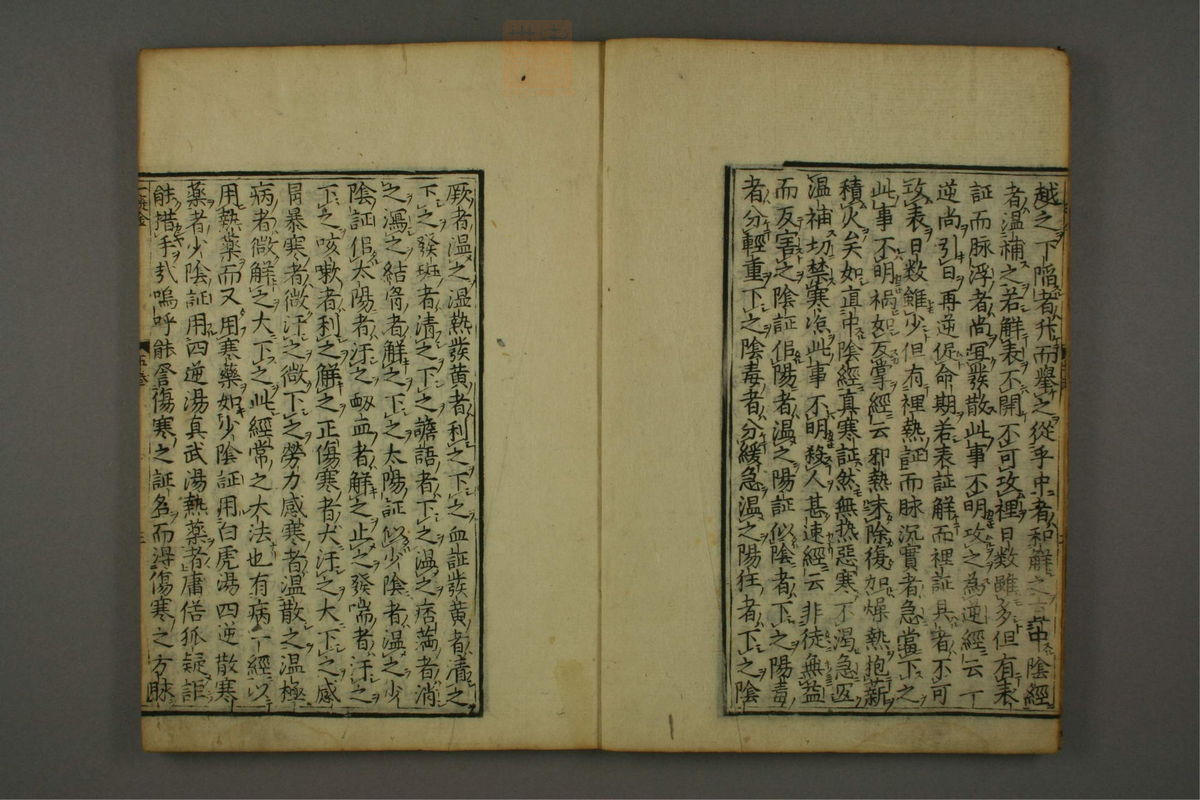 越之下陷者升而擧之從乎中者和解之直中陰經
者温補之若解表不開不可攻裡日数雖多但有表
証而脉浮者尚宜發散此事不明攻之為逆經云一
逆尚引日再逆促命期若表証解而裡証具者不可
攻表日数雖少但有裡熱証而脉沉實者急當下之
此事不明禍如反掌經云邪熱未除復如燥熱抱薪
積火矣如直中陰經真寒証然無熱惡寒不渴急宜
温補切禁寒冷此事不明殺人甚速經云非徒無益
而反害之陰証似陽者温之陽証似陰者下之陽毒
者分輕重下之陰毒者分緩急温之陽狂者下之陰
厥者温之温熱發黄者利之下之血証發黄者清之
下之發斑者清之下之譫語者下之温之痞滿者消
之瀉之結胷者解之下之太陽証似少陰者温之少
陰証似太陽者汗之衂血者解之止之發喘者汗之
下之咳嗽者利之解之正傷寒者大汗之大下之感
冒暴寒者微汗之微下之勞力感寒者温散之温極
病者微解之大下之此經常之大法也有病一經以
用熱藥而又用寒藥如少陰証用白虎湯四逆散寒
藥者少陰証用四逆湯真武湯熱藥者庸俗狐疑詎
能措手哉嗚呼能詧傷寒之証名而得傷寒之方脉